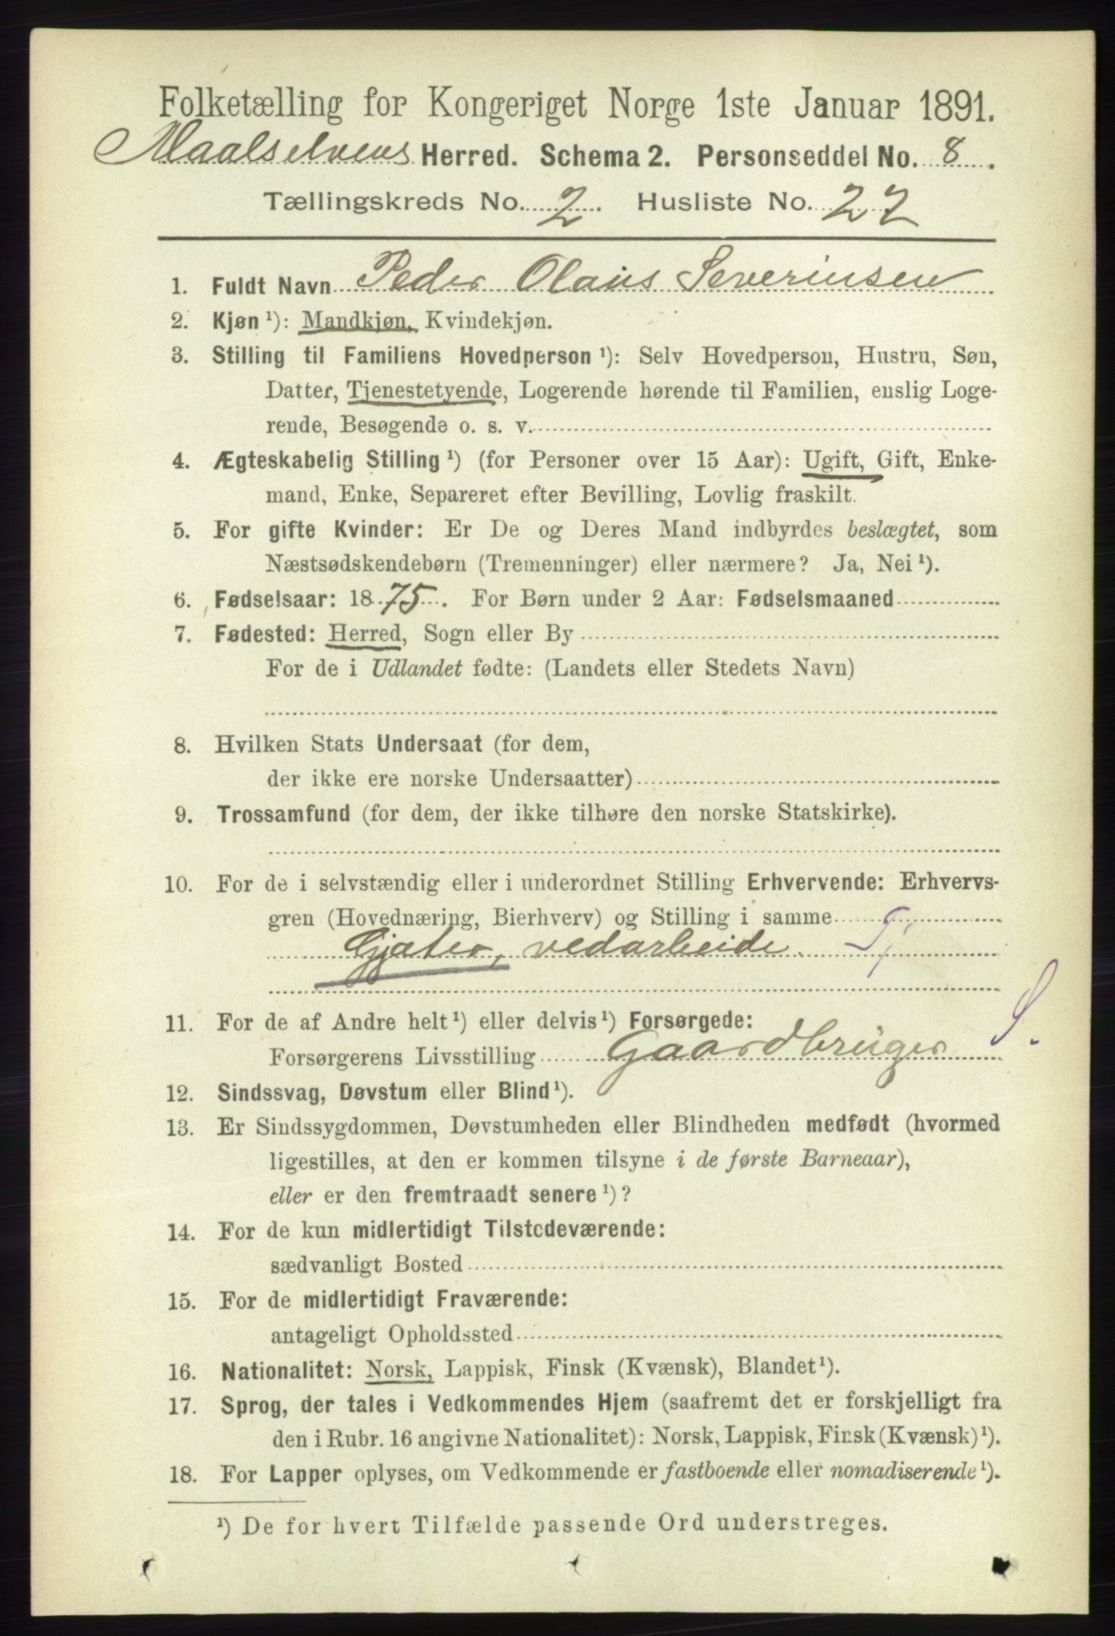 Folketælling for Kongeriget Norge 1ste Januar 1891.
Maalselvens Herred. Schema 2. Personseddel No. 8.
Tællingskreds No. 2. Husliste No. 22
1. Fuldt Navn Peder Olaus Severinsen
2. Kjøn ¹): Mandkjøn, Kvindekjøn.
3. Stilling til Familiens Hovedperson ¹): Selv Hovedperson, Hustru, Søn,
Datter, Tjenestetyende, Logerende hørende til Familien, enslig Loge-
rende, Besøgende o. s. v.
4. Ægteskabelig Stilling ¹) (for Personer over 15 Aar): Ugift, Gift, Enke-
mand, Enke, Separeret efter Bevilling, Lovlig fraskilt.
5. For gifte Kvinder: Er De og Deres Mand indbyrdes beslægtet, som
Næstsødskendebørn (Tremenninger) eller nærmere? Ja, Nei ¹).
6. Fødselsaar: 1875. For Børn under 2 Aar: Fødselsmaaned
7. Fødested: Herred, Sogn eller By
For de i Udlandet fødte: (Landets eller Stedets Navn)
8. Hvilken Stats Undersaat (for dem,
der ikke ere norske Undersaatter)
9. Trossamfund (for dem, der ikke tilhøre den norske Statskirke).
10. For de i selvstændig eller i underordnet Stilling Erhvervende: Erhvervs-
gren (Hovednæring, Bierhverv) og Stilling i samme
Gjæter, vedarbeide. Tj
11. For de af Andre helt ¹) eller delvis ¹) Forsørgede: S.
Forsørgerens Livsstilling Gaardbruger
12. Sindssvag, Døvstum eller Blind ¹).
13. Er Sindssygdommen, Døvstumheden eller Blindheden medfødt (hvormed
ligestilles, at den er kommen tilsyne i de første Barneaar),
eller er den fremtraadt senere ¹)?
14. For de kun midlertidigt Tilstedeværende:
sædvanligt Bosted
15. For de midlertidigt Fraværende:
antageligt Opholdssted
16. Nationalitet: Norsk, Lappisk, Finsk (Kvænsk), Blandet ¹).
17. Sprog, der tales i Vedkommendes Hjem (saafremt det er forskjelligt fra
den i Rubr. 16 angivne Nationalitet): Norsk, Lappisk, Finsk (Kvænsk) ¹).
18. For Lapper oplyses, om Vedkommende er fastboende eller nomadiserende ¹).
¹) De for hvert Tilfælde passende Ord understreges.